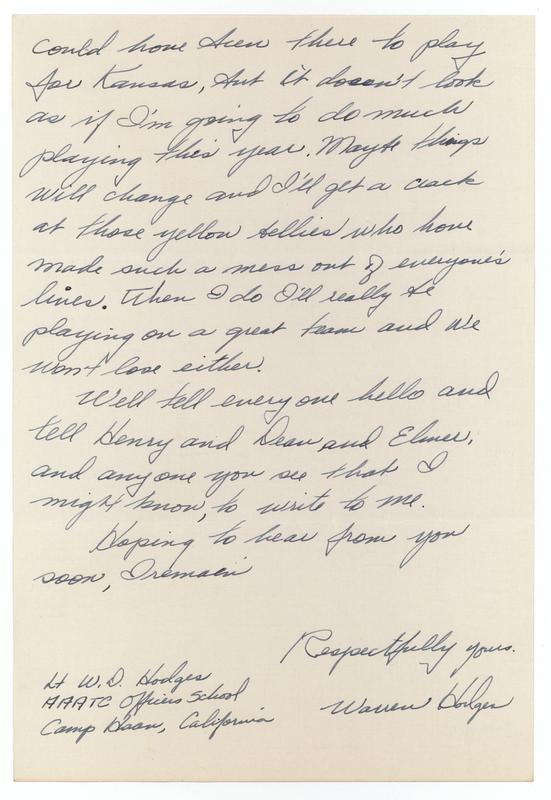 could have been there to play
for Kansas, but it doesn't look
as if I'm going to do much
playing this year. Maybe things
will change and I'll get a crack
at those yellow bellies who have
made such a mess out of everyone's
lives. When I do I'll really be
playing on a great team and we
won't lose either.
Well tell everyone hello and
tell Henry and Dean, and Elmer,
and anyone you see that I
might know, to write to me.
Hoping to hear from you
soon, I remain
Respectfully yours.
Warren Hodges
Lt W. D. Hodges
AAATC Officers School
Camp Haan, California